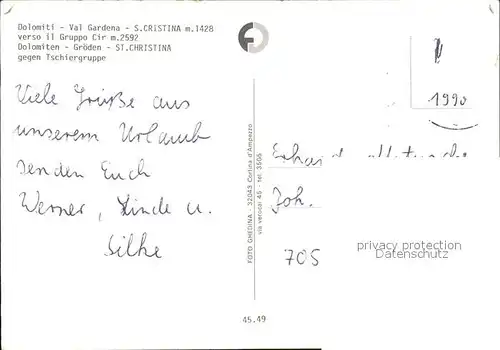 Dolomiti - Val Gardena - S.CRISTINA m.1428
verso il Gruppo Cir m.2592
Dolomiten - Gröden - ST.CHRISTINA
gegen Tschiergruppe
Viele Grüße aus
unserem Urlaub
senden Euch
Werner, Linde u.
Silke
FOTO GHEDINA - 32043 Cortina d'Ampezzo
via verocai 45 - tel. 3505
45.49
1990
Joh.
705
privacy protection
oldthing.de